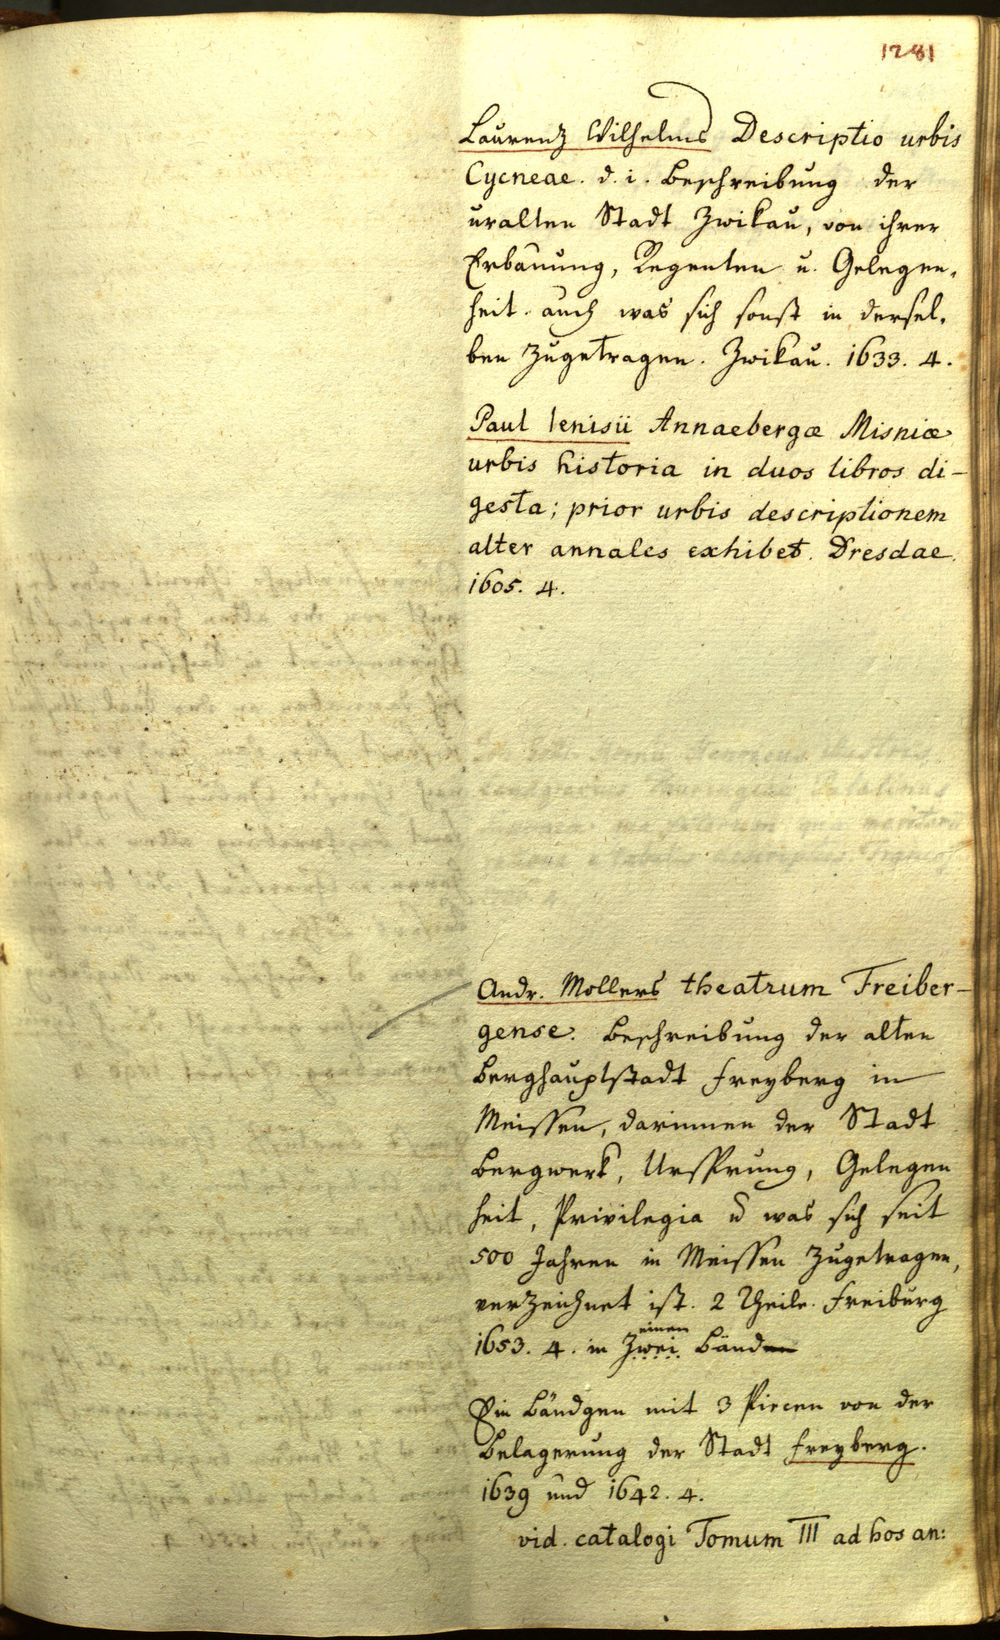 1281
Laurenz Wilhelms Descriptio urbis
Cycneae. d. i. Beschreibung der
uralten Stadt Zwikau, von ihrer
Erbauung, Regenten u. Gelegen,
heit. auch was sich sonst in dersel,
ben zugetragen. Zwikau. 1633. 4.
Paul Ienisii Annaebergæ Misniæ
urbis historia in duos libros di-
gesta; prior urbis descriptionem
alter annales exhibet. Dresdae.
1605. 4.
Henricus Illustris
Landgravius Thuringiae Palatinus
Saxoniae
Andr. Mollers theatrum Freiber-
gense. Beschreibung der alten
Berghauptstadt Freyberg in
Meissen, darinnen der Stadt
Bergwerk, Ursprung, Gelegen
heit, Privilegia u was sich seit
500 Jahren in Meissen zugetragen,
verzeichnet ist. 2 Theile. Freiburg
einen
1653. 4. in Zwei Bänden
Ein Bändgen mit 3 Piecen von der
Belagerung der Stadt Freyberg.
1639 und 1642. 4.
vid. catalogi Tomum III ad hos an: